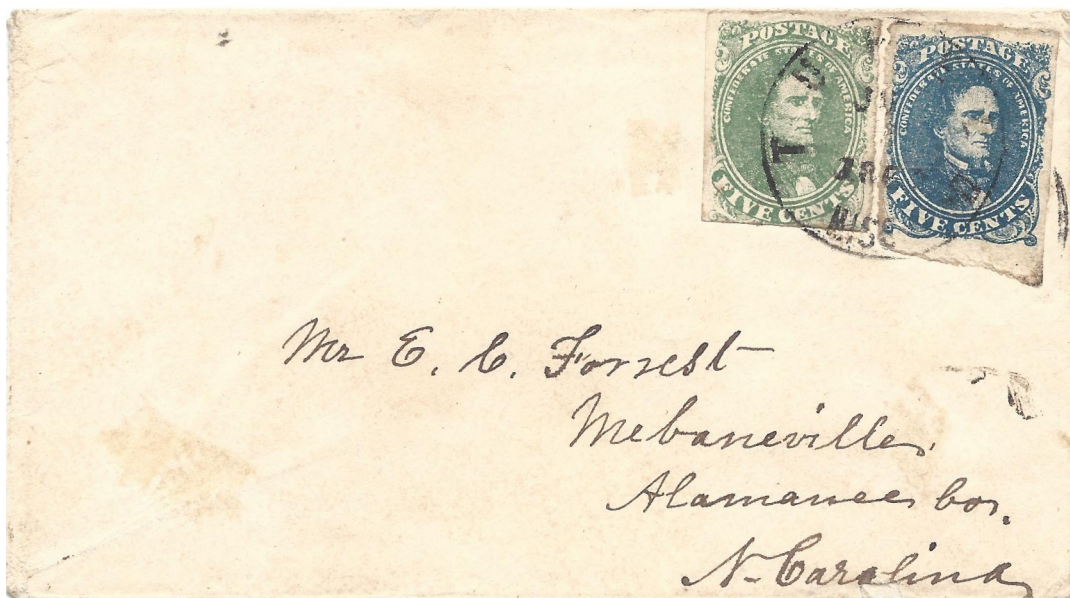 POSTAGE
CONFEDERATE STATES OF AMERICA
FIVE CENTS
POSTAGE
CONFEDERATE STATES OF AMERICA
FIVE CENTS
MISS
Mr E. C. Forrest
Mebaneville
Alamance Co.
N. Carolina